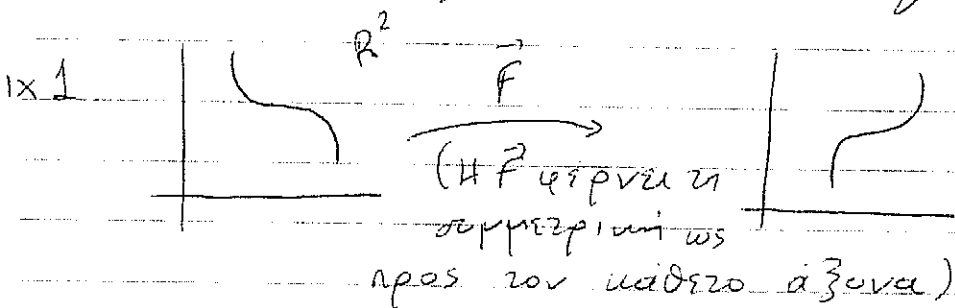 R²
F⃗
ιχ 1
(Η F⃗ φέρνει τη
συμμετρική ως
προς τον κάθετο άξονα)